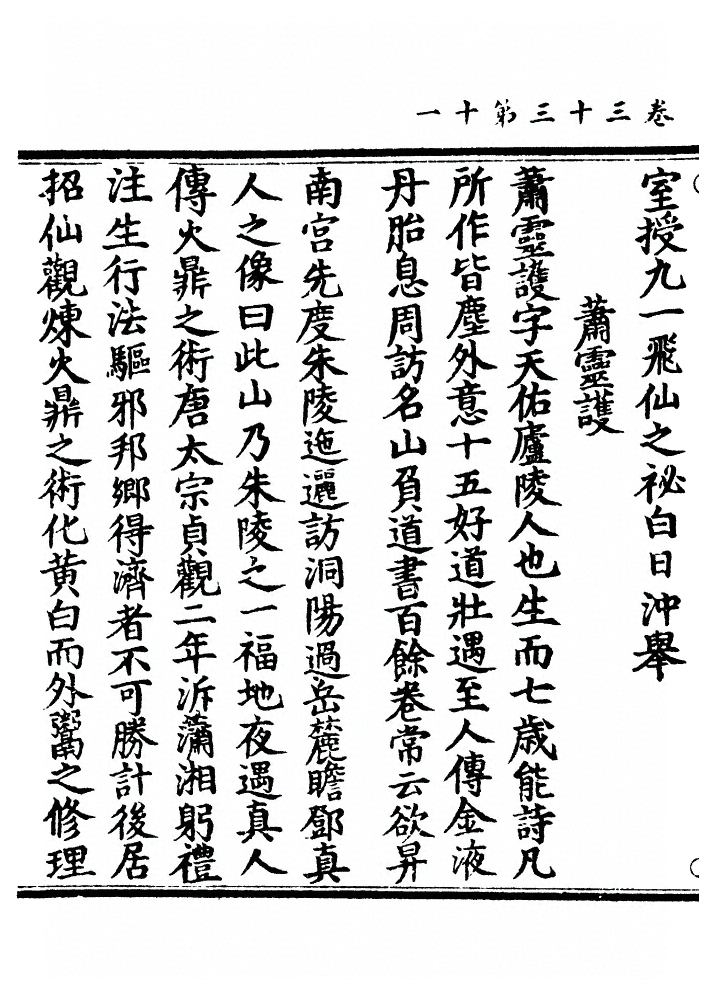 卷三十三第十一
室授九一飛仙之祕白日沖舉
蕭靈護
蕭靈護字天佑廬陵人也生而七歲能詩凡
所作皆塵外意十五好道壯遇至人傳金液
丹胎息周訪名山負道書百餘卷常云欲昇
南宮先度朱陵迤邐訪洞陽過岳麓瞻鄧真
人之像曰此山乃朱陵之一福地夜遇真人
傳火鼎之術唐太宗貞觀二年泝瀟湘躬禮
注生行法驅邪邦鄉得濟者不可勝計後居
招仙觀煉火鼎之術化黃白而外鬻之修理